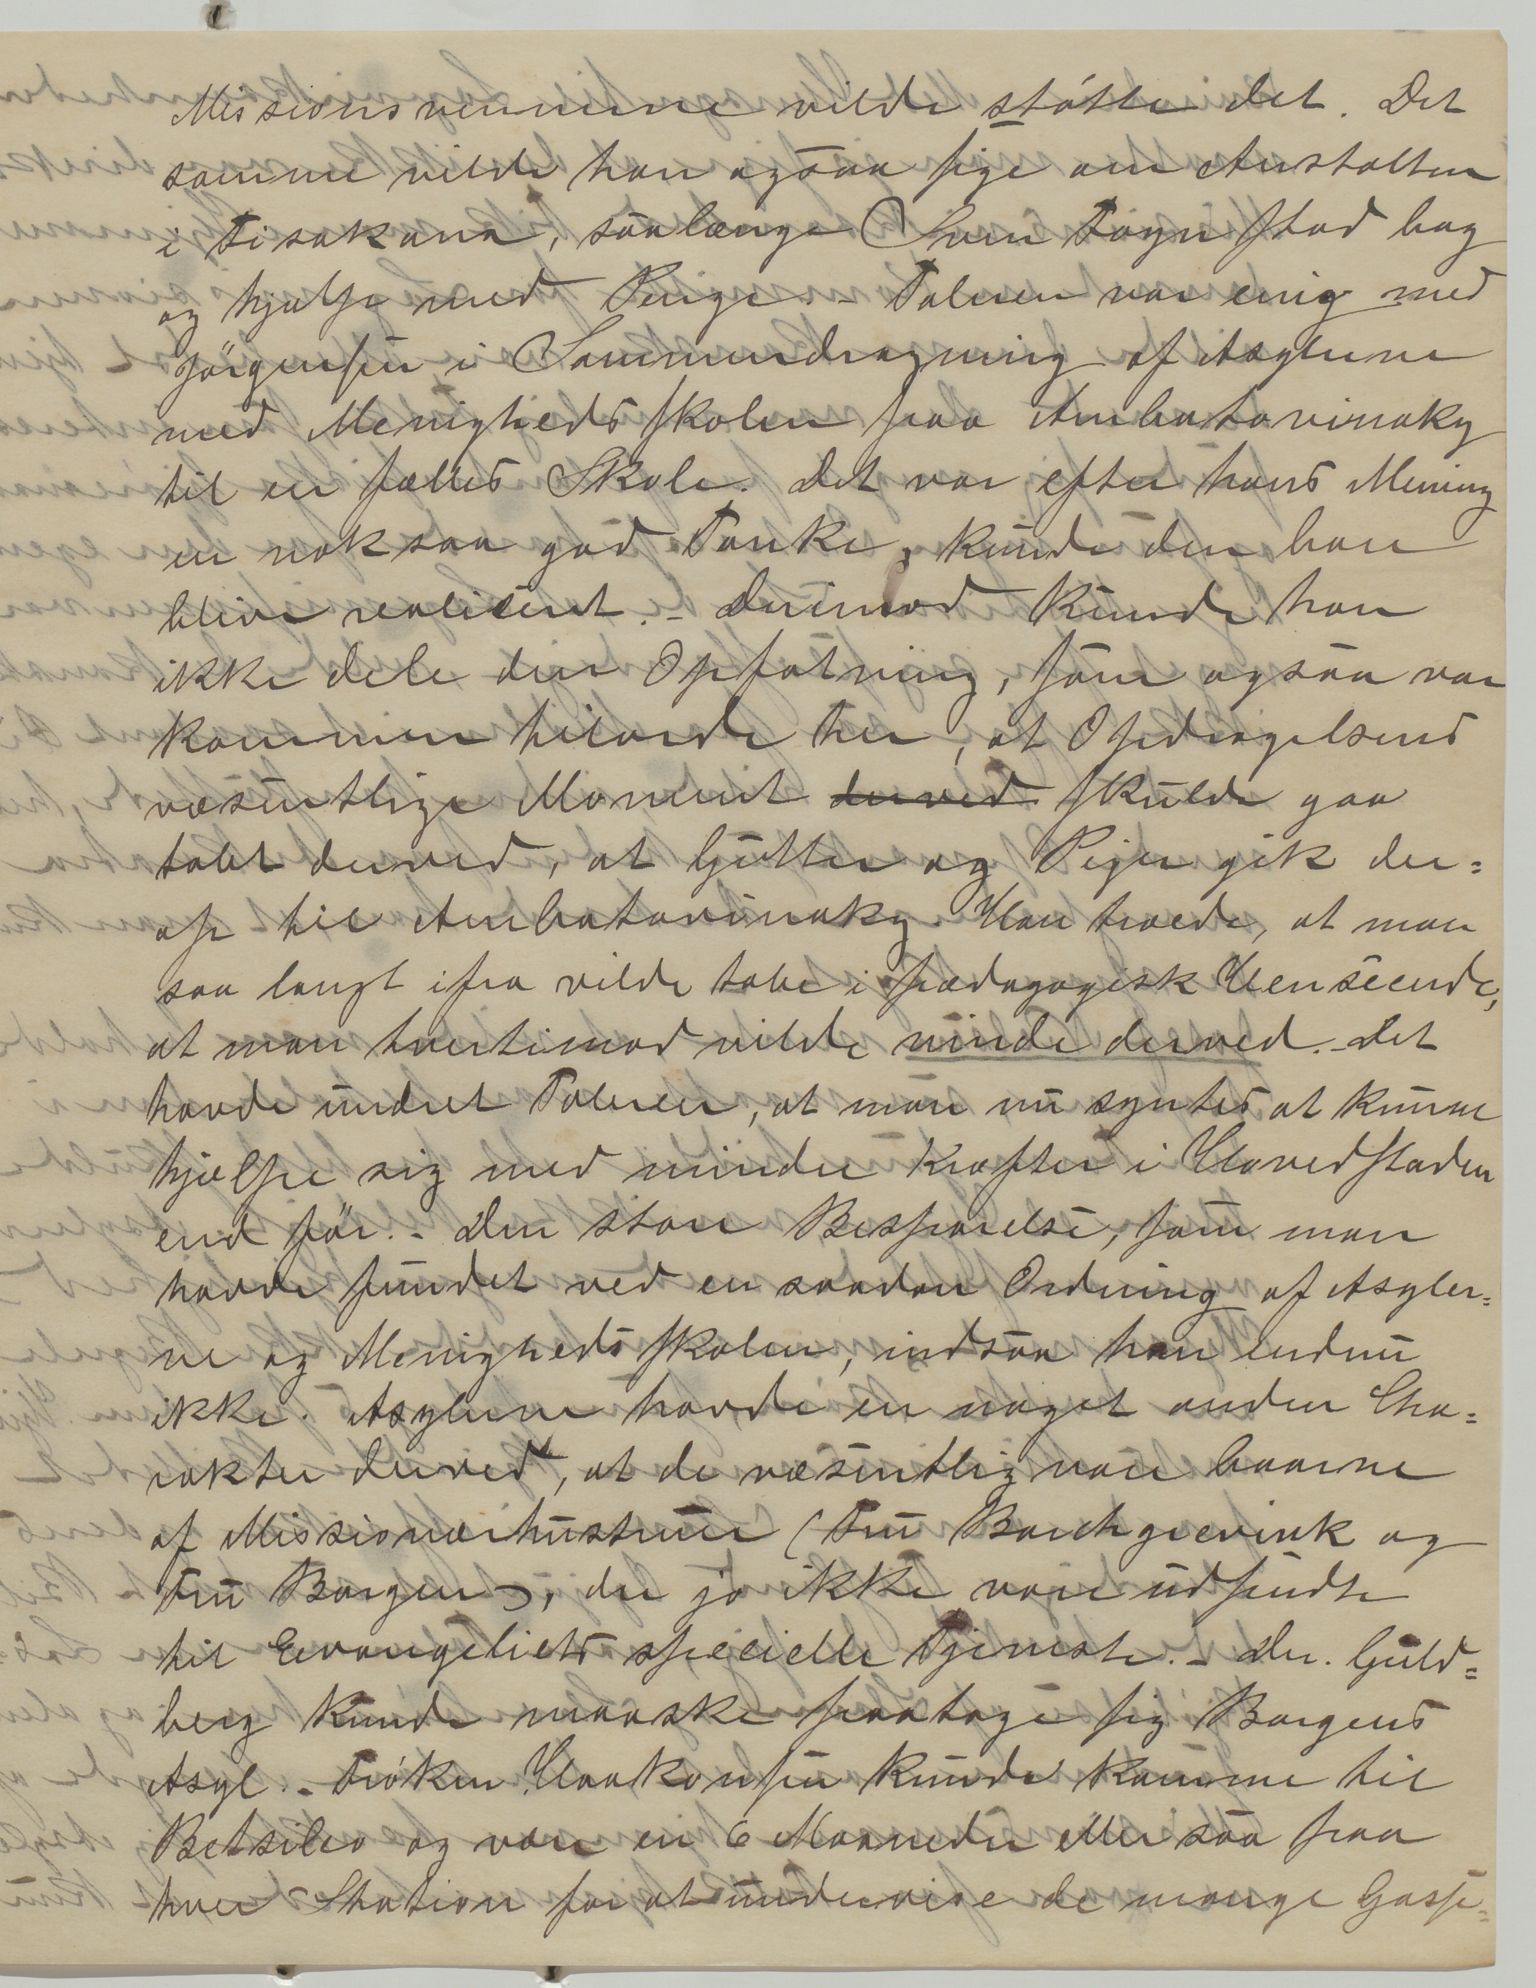 Missionsvennerne vilde støtte det. Det
samme vilde han ogsaa sige om Anstalten
i Fisakana, saalænge Sven Foyn stod bag
og hjalp med Penge. - Taleren var enig med
Jörgensen i Sammendragning af Asylerne
med Menighedsskolen paa Ambatovinaky
til en fælles Skole. Det var efter hans Mening
en noksaa god Tanke, kunde den bare
blive realiseret. - Derimod kunde han
ikke dele den Opfatning, som ogsaa var
kommen tilorde her, at Opdragelsens
væsentlige Moment derved skulde gaa
tabt derved, at Gutter og Piger gik der=
op til Ambatovinaky. Han troede, at man
saa langt ifra vilde tabe i pædagogisk Henseende,
at man tvertimod vilde vinde derved. - Det
havde undret Taleren, at man nu syntes at kunne
hjælpe sig med mindre Kræfter i Hovedstaden
end för. - Den store Besparelse, som man
havde fundet ved en saadan Ordning af Asyler=
ne og Menighedsskolen, indsaa han endnu
ikke. Asylerne havde en noget anden Cha=
rakter derved, at de væsentlig vare baarne
af Missionærhustruer (Fru Borchgrevink og
Fru Borgen), der jo ikke vare udsendte
til Evangeliets specielle Tjeneste. - Dr. Guld=
berg kunde maaske paatage sig Borgens
Asyl. - Frøken Haakonsen kunde komme til
Betsileo og være en 6 Maaneder eller saa paa
hver Station for at undervise de mange Gasse=